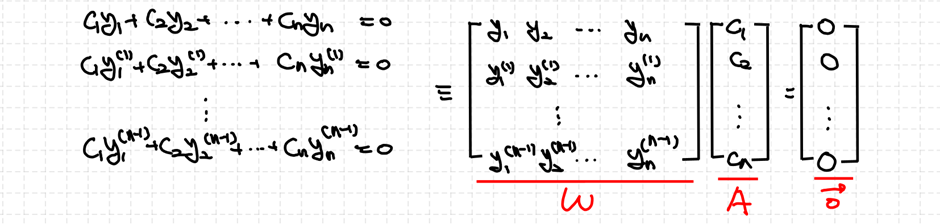 C₁y₁ + C₂y₂ + ··· + Cₙyₙ = 0
C₁y₁⁽¹⁾ + C₂y₂⁽¹⁾ + ··· + Cₙyₙ⁽¹⁾ = 0
⋮
C₁y₁⁽ⁿ⁻¹⁾ + C₂y₂⁽ⁿ⁻¹⁾ + ··· + Cₙyₙ⁽ⁿ⁻¹⁾ = 0
≡
[ y₁ y₂ ··· yₙ ] [ C₁ ] [ 0 ]
[ y₁⁽¹⁾ y₂⁽¹⁾ ··· yₙ⁽¹⁾ ] [ C₂ ] [ 0 ]
[ ⋮ ] [ ⋮ ] = [ ⋮ ]
[ y₁⁽ⁿ⁻¹⁾ y₂⁽ⁿ⁻¹⁾ ··· yₙ⁽ⁿ⁻¹⁾ ] [ Cₙ ] [ 0 ]
W A 0⃗